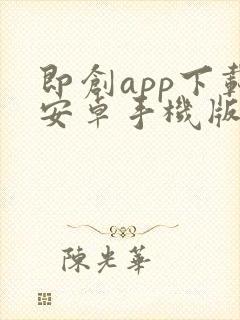 即創app下載
安卓手機版
陳光華